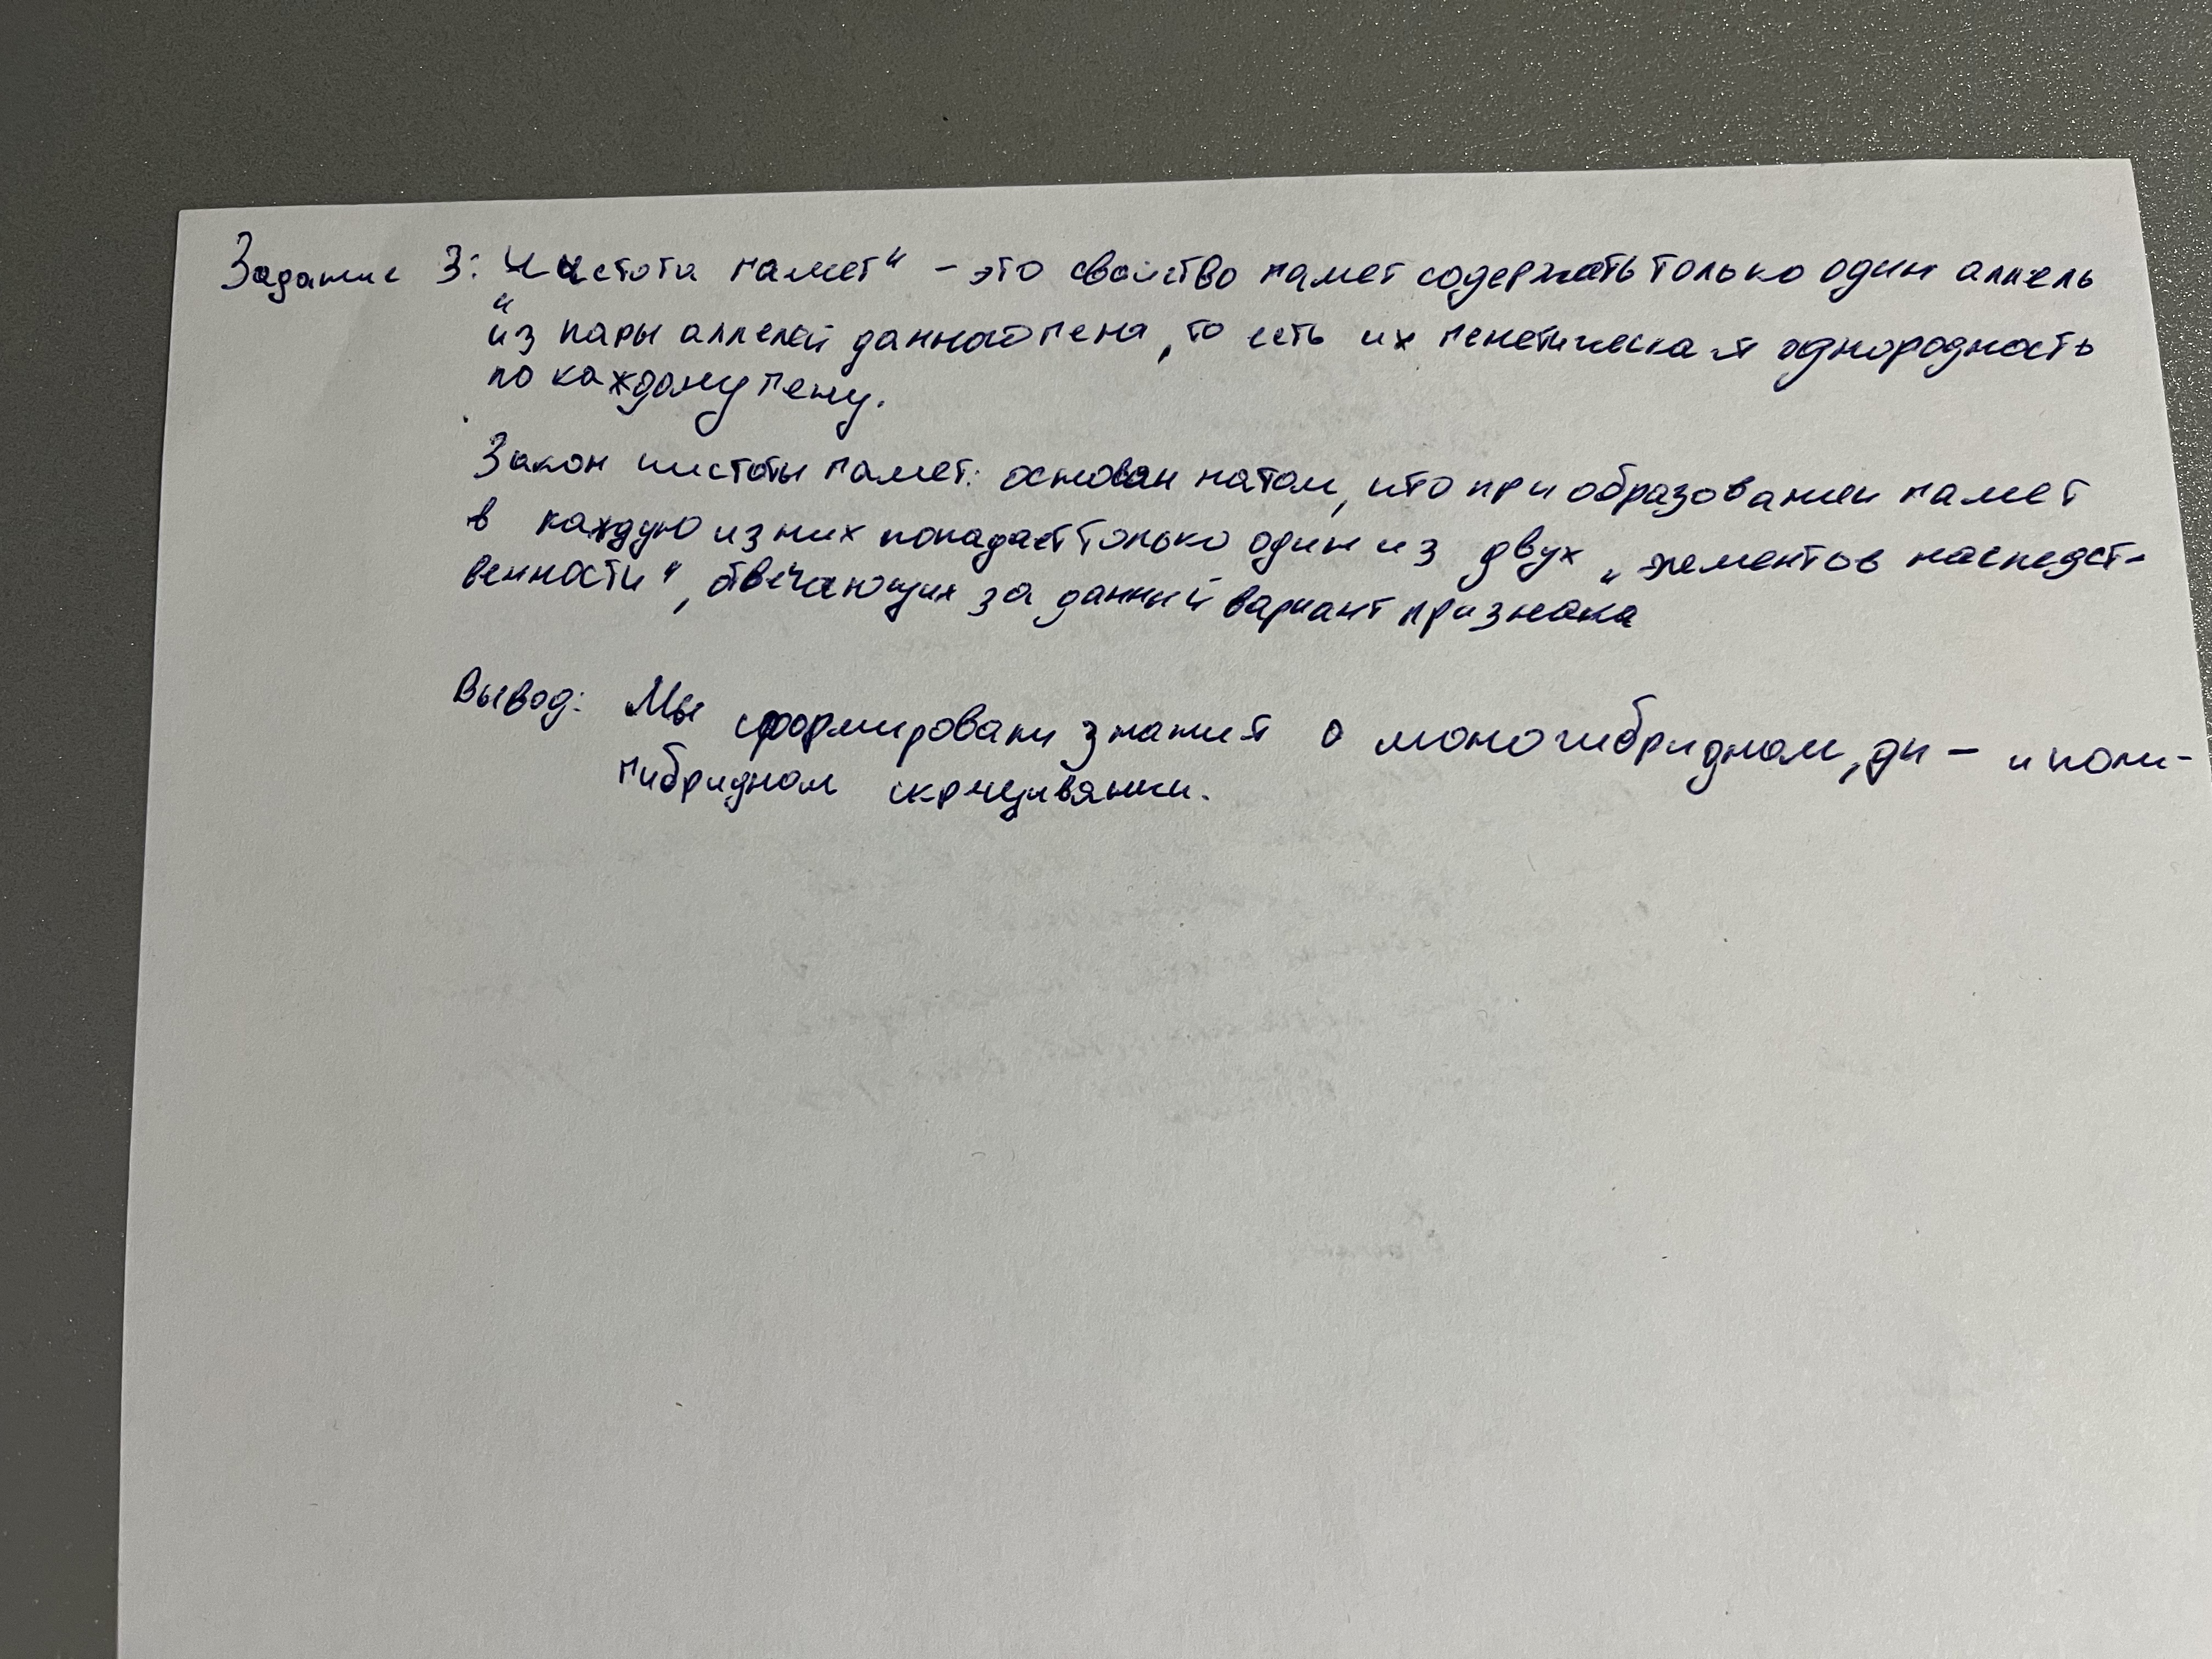 Задание 3: "Чистота гамет" - это свойство гамет содержать только один аллель
из пары аллелей данного гена, то есть их генетическая однородность
по каждому гену.
Закон чистоты гамет: основан на том, что при образовании гамет
в каждую из них попадает только один из двух „элементов наследст-
венности", отвечающих за данный вариант признака
Вывод: Мы сформировали знания о моногибридном, ди- и поли-
гибридном скрещивании.